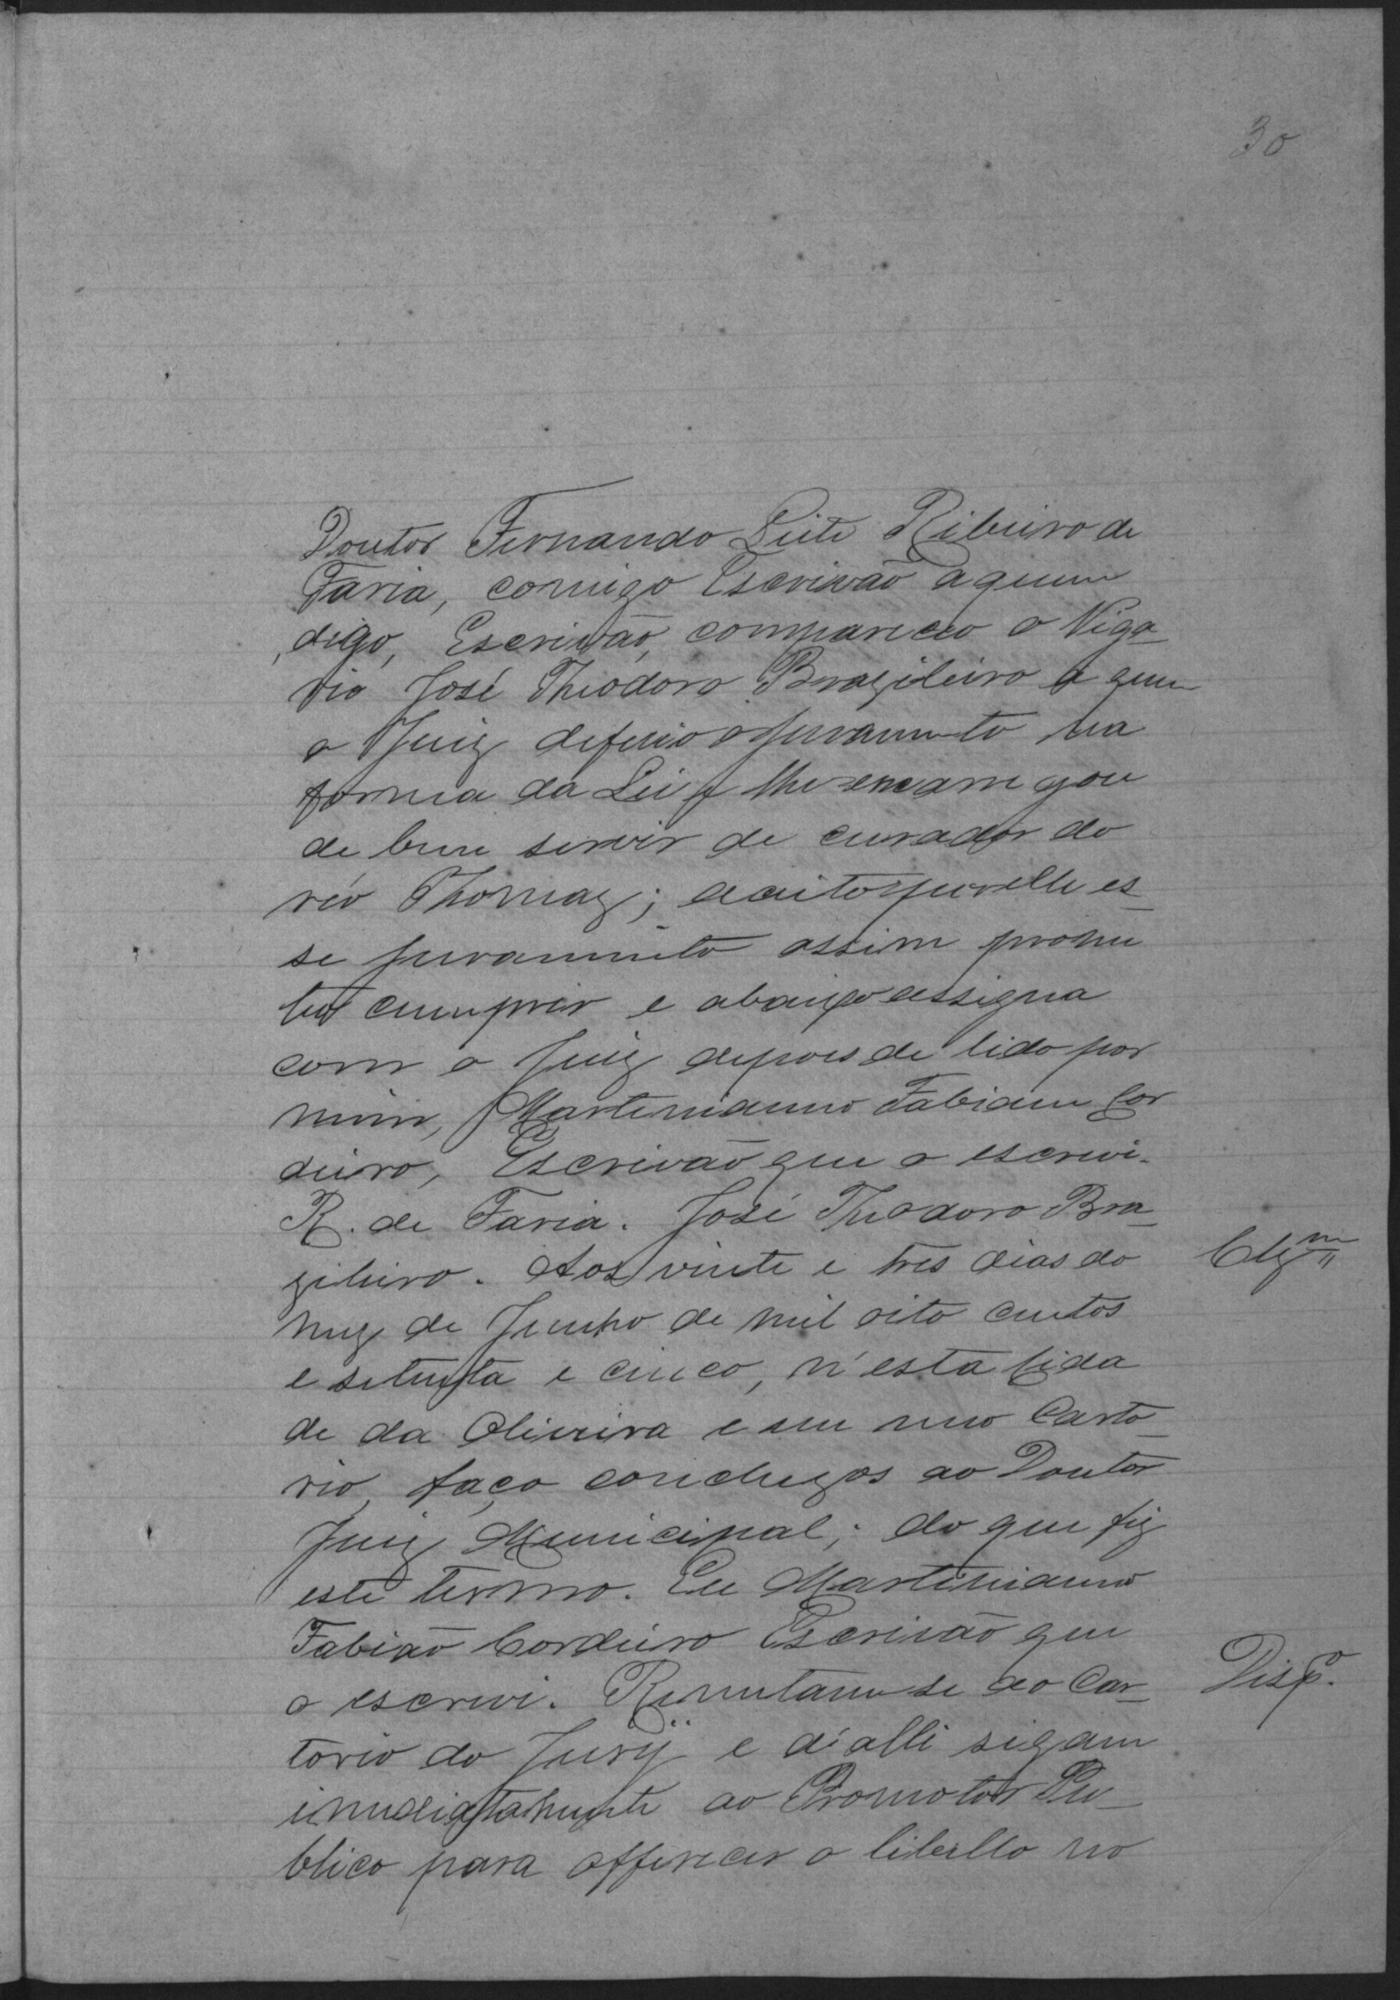 30
Doutor Fernando Leite Ribeiro de
Faria, comigo Escrivão a quem
, digo, Escrivão, compareceo o Viga_
rio José Theodoro Brazileiro a quem
o Juiz deferio o juramento na
forma da Lei e lhe encarregou
de bem servir de curador do
réo Thomaz; aceito por elle es_
se juramento assim prome
teo cumprir e abaixo assigna
com o Juiz depois de lido por
mim, Martinianno Fabiam Cor
deiro, Escrivão que o escrevi.
R. de Faria. José Theodoro Bra_
zileiro. Aos vinte e tres dias do
Clzm
mez de Junho de mil oito centos
e setenta e cinco, n'esta Cida
de da Oliveira e em meo Carto_
rio, faço concluzos ao Doutor
Juiz Municipal; do que fiz
este termo. Eu Martinianno
Fabião Cordeiro Escrivão que
o escrevi. Remetam-se ao Car_
Dispo.
torio do Jury e d'alli sigam
immediatamente ao Promotor Pu_
blico para offerecer o libello no